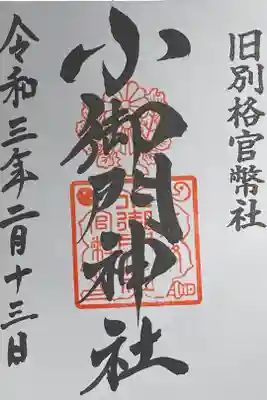 旧別格官幣社
小御門神社
令和三年二月十三日